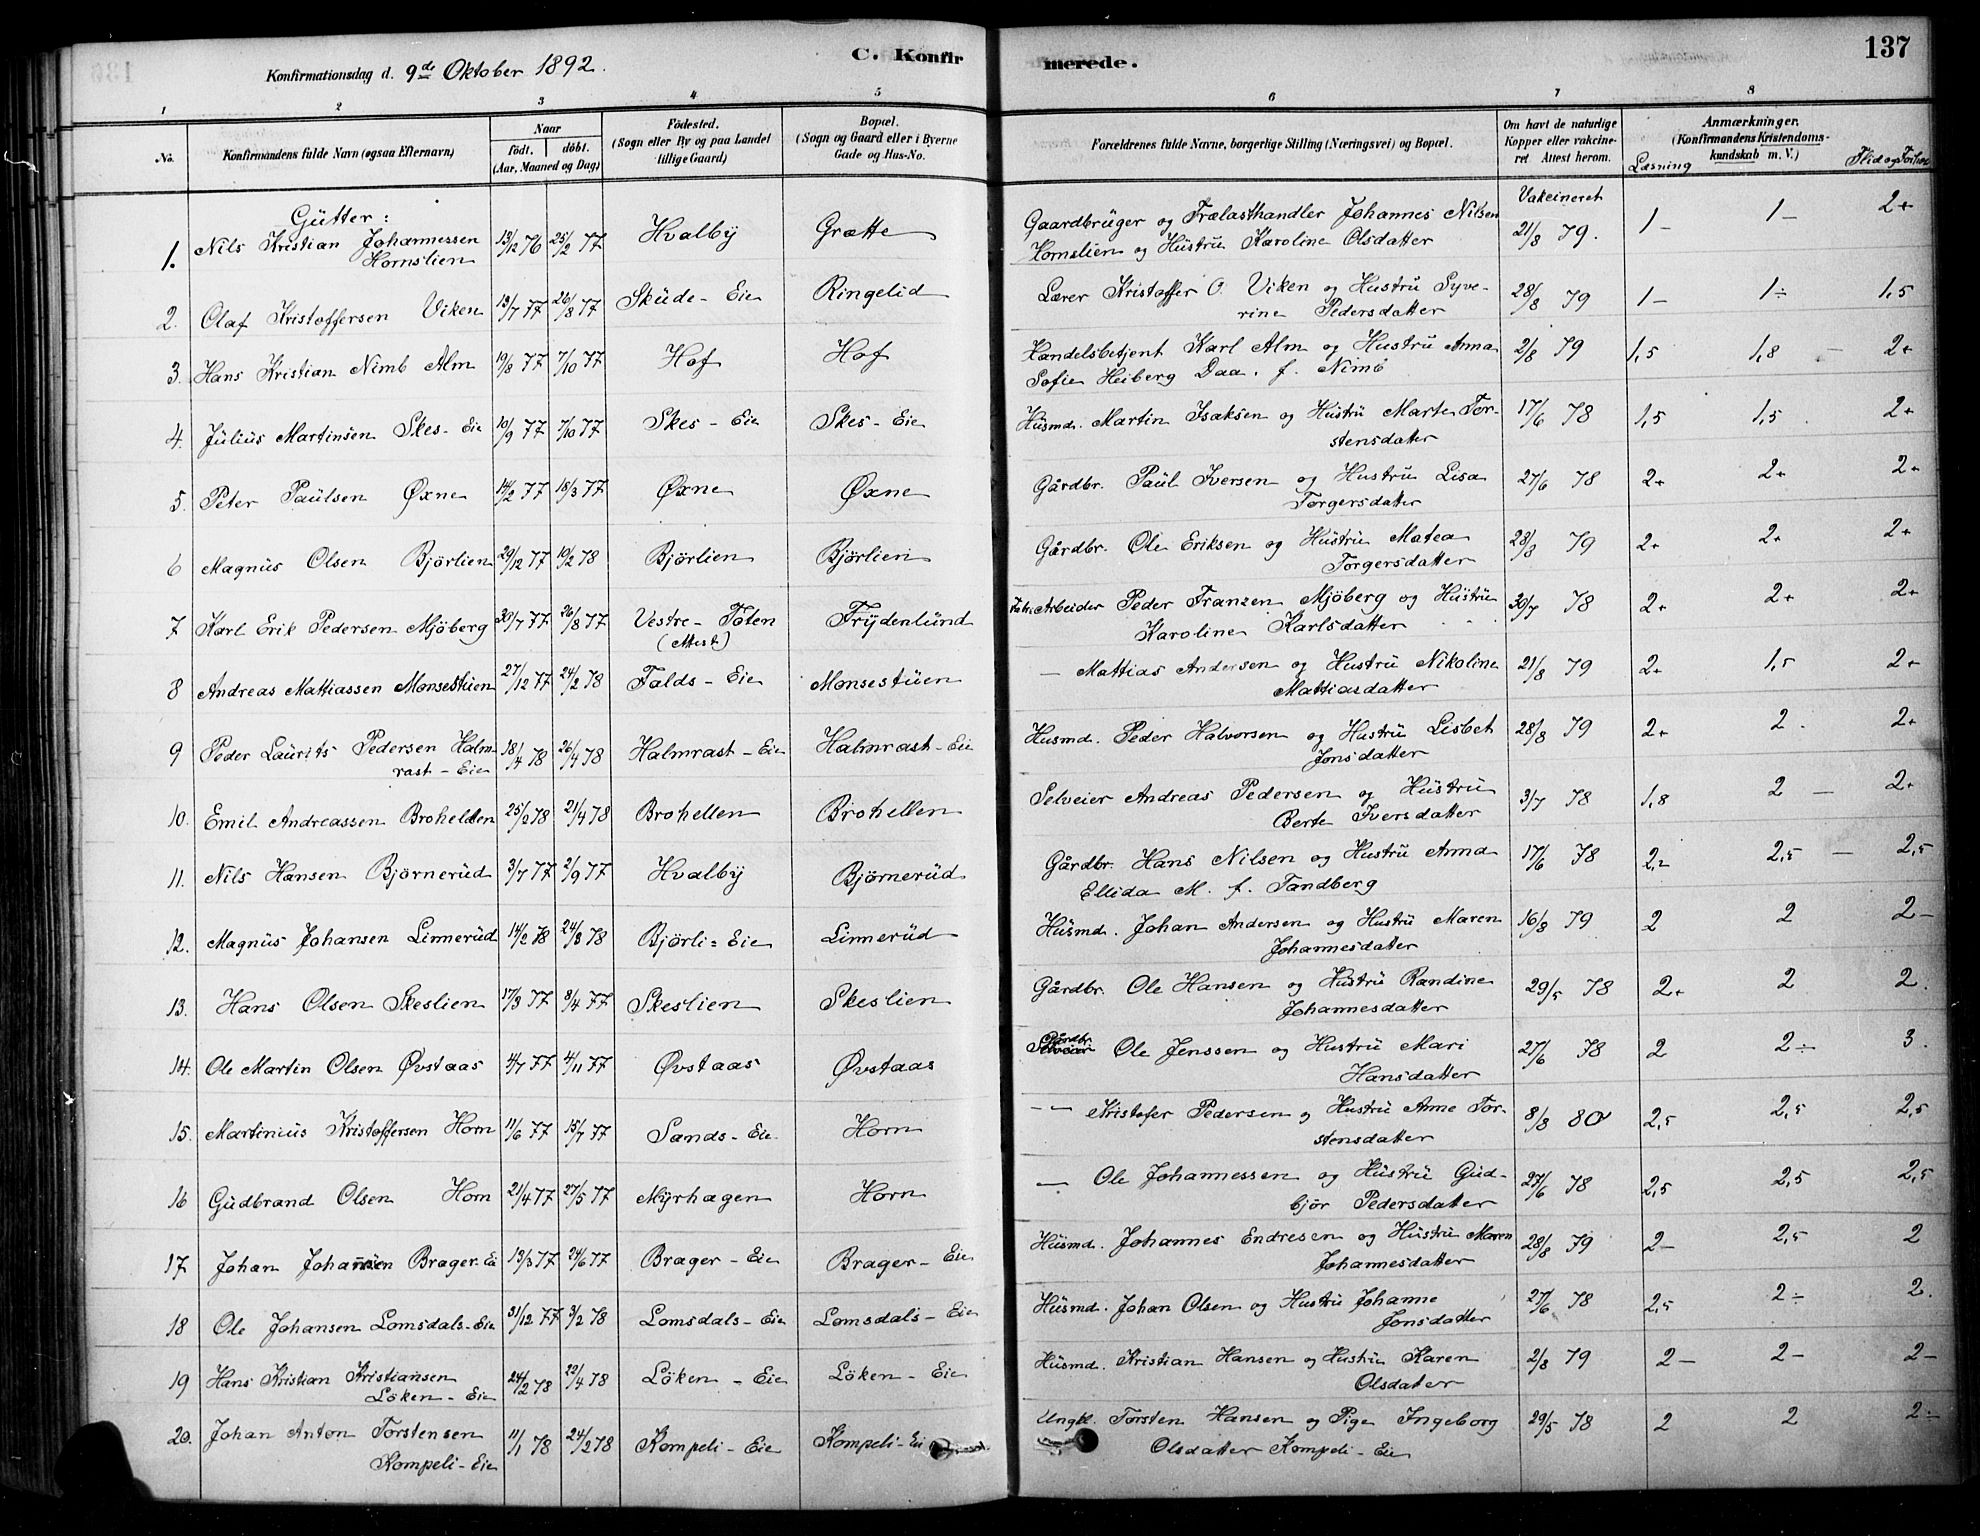 137
Konfirmationsdag d. 9de Oktober 1892.
C. Konfirmerede.
1 2 3 4 5 6 7 8
No.
Konfirmandens fulde Navn (ogsaa Efternavn)
Naar
födt. döbt.
(Aar, Maaned og Dag)
Födested.
(Sogn eller By og paa Landet
tillige Gaard)
Bopæl.
(Sogn og Gaard eller i Byerne
Gade og Hus-No.
Forældrenes fulde Navne, borgerlige Stilling (Næringsvei) og Bopæl.
Om havt de naturlige
Kopper eller vakcine-
ret Attest herom.
Anmærkninger.
(Konfirmandens Kristendoms-
kundskab m. V.)
Læsning
Flid og Forhold
Gütter:
Vakcineret
1. Nils Kristian Johannessen 13/12 76 25/2 77 Hvalby Grætte Gaardbrüger og Trælasthandler Johannes Nilsen 21/8 79. 1- 1- 2+
Hornslien Hornslien og Hüstrü Karoline Olsdatter
2. Olaf Kristoffersen Viken 13/7 77 26/8 77 Sküde-Eie Ringelid Lærer Kristoffer O. Viken og Hustrü Syve- 28/8 79 1- 1÷ 1,5
rine Pedersdatter
3. Hans Kristian Nimb Alm 19/8 77 7/10 77 Hof Hof Handelsbetjent Karl Alm og Hustrü Anna 2/8 79 1,5 1,8 - 2+
Sofie Heiberg Daa. f. Nimb
4. Julius Martinsen Skes-Eie 10/9 77 7/10 77 Skes-Eie Skes-Eie Hüsmd. Martin Isaksen og Hüstrü Marte Tor- 17/6 78 1,5 1,5 2+
stensdatter
5. Peter Paülsen Øxne 14/2 77 18/3 77 Øxne Øxne Gårdbr. Paül Iversen og Hustrü Lisa 27/6 78 2+ 2+ 2+
Torgersdatter
6 Magnüs Olsen Björlien 29/12 77 10/2 78 Björlien Björlien Gårdbr. Ole Eriksen og Hüstrü Matea 28/8 79 2+ 2+ 2+
Torgersdatter
7 Karl Erik Pedersen Mjöberg 30/7 77 26/8 77 Vestre-Toten Frydenlünd Arbeider Peder Franzen Mjöberg og Hüstrü 30/7 78 2+ 2+ 2+
(Attest) Karoline Karlsdatter
8 Andreas Mattiassen Monsestüen 27/12 77 24/2 78 Falds-Eie Monsestüen - Mattias Andersen og Hüstrü Nikoline 21/8 79 2+ 1,5 2+
Mattiasdatter
9 Peder Laurits Pedersen Halm- 18/4 78 26/4 78 Halmrast-Eie Halmrast-Eie Husmd. Peder Halvorsen og Hüstrü Lisbet 28/8 79 2+ 2. 2+
rast-Eie Jonsdatter
10. Emil Andreassen Brohellen 25/2 78 21/4 78 Brohellen Brohellen Selveier Andreas Pedersen og Hüstrü 3/7 78 1,8 2 - 2+
Berte Iversdatter
11. Nils Hansen Björnerüd 3/7 77 2/9 77 Hvalby Björnerüd Gårdbr. Hans Nilsen og Hustrü Anna 17/6 78 2,- 2,5 - 2,5
Ellida M. f. Tandberg
12. Magnüs Johansen Linnerüd 14/2 78 24/3 78 Björli=Eie Linnerüd Hüsmd. Johan Andersen og Hustrü Maren 16/8 79 2 2 2-
Johannesdatter
13. Hans Olsen Skeslien 17/3 77 8/4 77 Skeslien Skeslien Gårdbr. Ole Hansen og Hustrü Randine 29/5 78 2+ 2 2.
Johannesdatter
14. Ole Martin Olsen Øvstaas 4/7 77 4/11 77 Øvstaas Øvstaas Gårdbr. Ole Jenssen og Hustrü Mari 27/6 78 2 2÷ 3.
Hansdatter
15. Martinius Kristoffersen Horn 11/6 77 15/7 77 Sands-Eie Horn -- Kristofer Pedersen og Hustrü Anne Tor- 8/8 80 2,5 2,5 2,5
stensdatter
16 Güdbrand Olsen Horn 21/4 77 27/5 77 Myrhagen Horn - Ole Johannessen og Hüstrü Gud- 27/6 78 2,5 2,5 2,5
björ Pedersdatter
17 Johan Johansen Brager-Eie 13/3 77 24/6 77 Brager-Eie Brager-Eie Hüsmd. Johannes Endresen og Hüstrü Maren 28/8 79 2- 2,5 2
Johannesdatter
18 Ole Johansen Lomsdals-Eie 31/12 77 3/2 78 Lomsdals-Eie Lomsdals-Eie Hüsmd. Johan Olsen og Hustrü Johanne 27/6 78 2,5 2÷ 2.
Jonsdatter
19 Hans Kristian Kristiansen 24/2 78 22/4 78 Löken-Eie Löken-Eie Hüsmd. Kristian Hansen og Hustrü Karen 2/8 79 2- 2- 2-
Löken-Eie Olsdatter
20. Johan Anton Torstensen 11/1 78 24/2 78 Kompeli-Eie Kompeli-Eie Ungkl. Torsten Hansen og Pige Ingeborg 29/5 78 2 2 2÷
Kompeli-Eie Olsdatter Kompeli-Eie